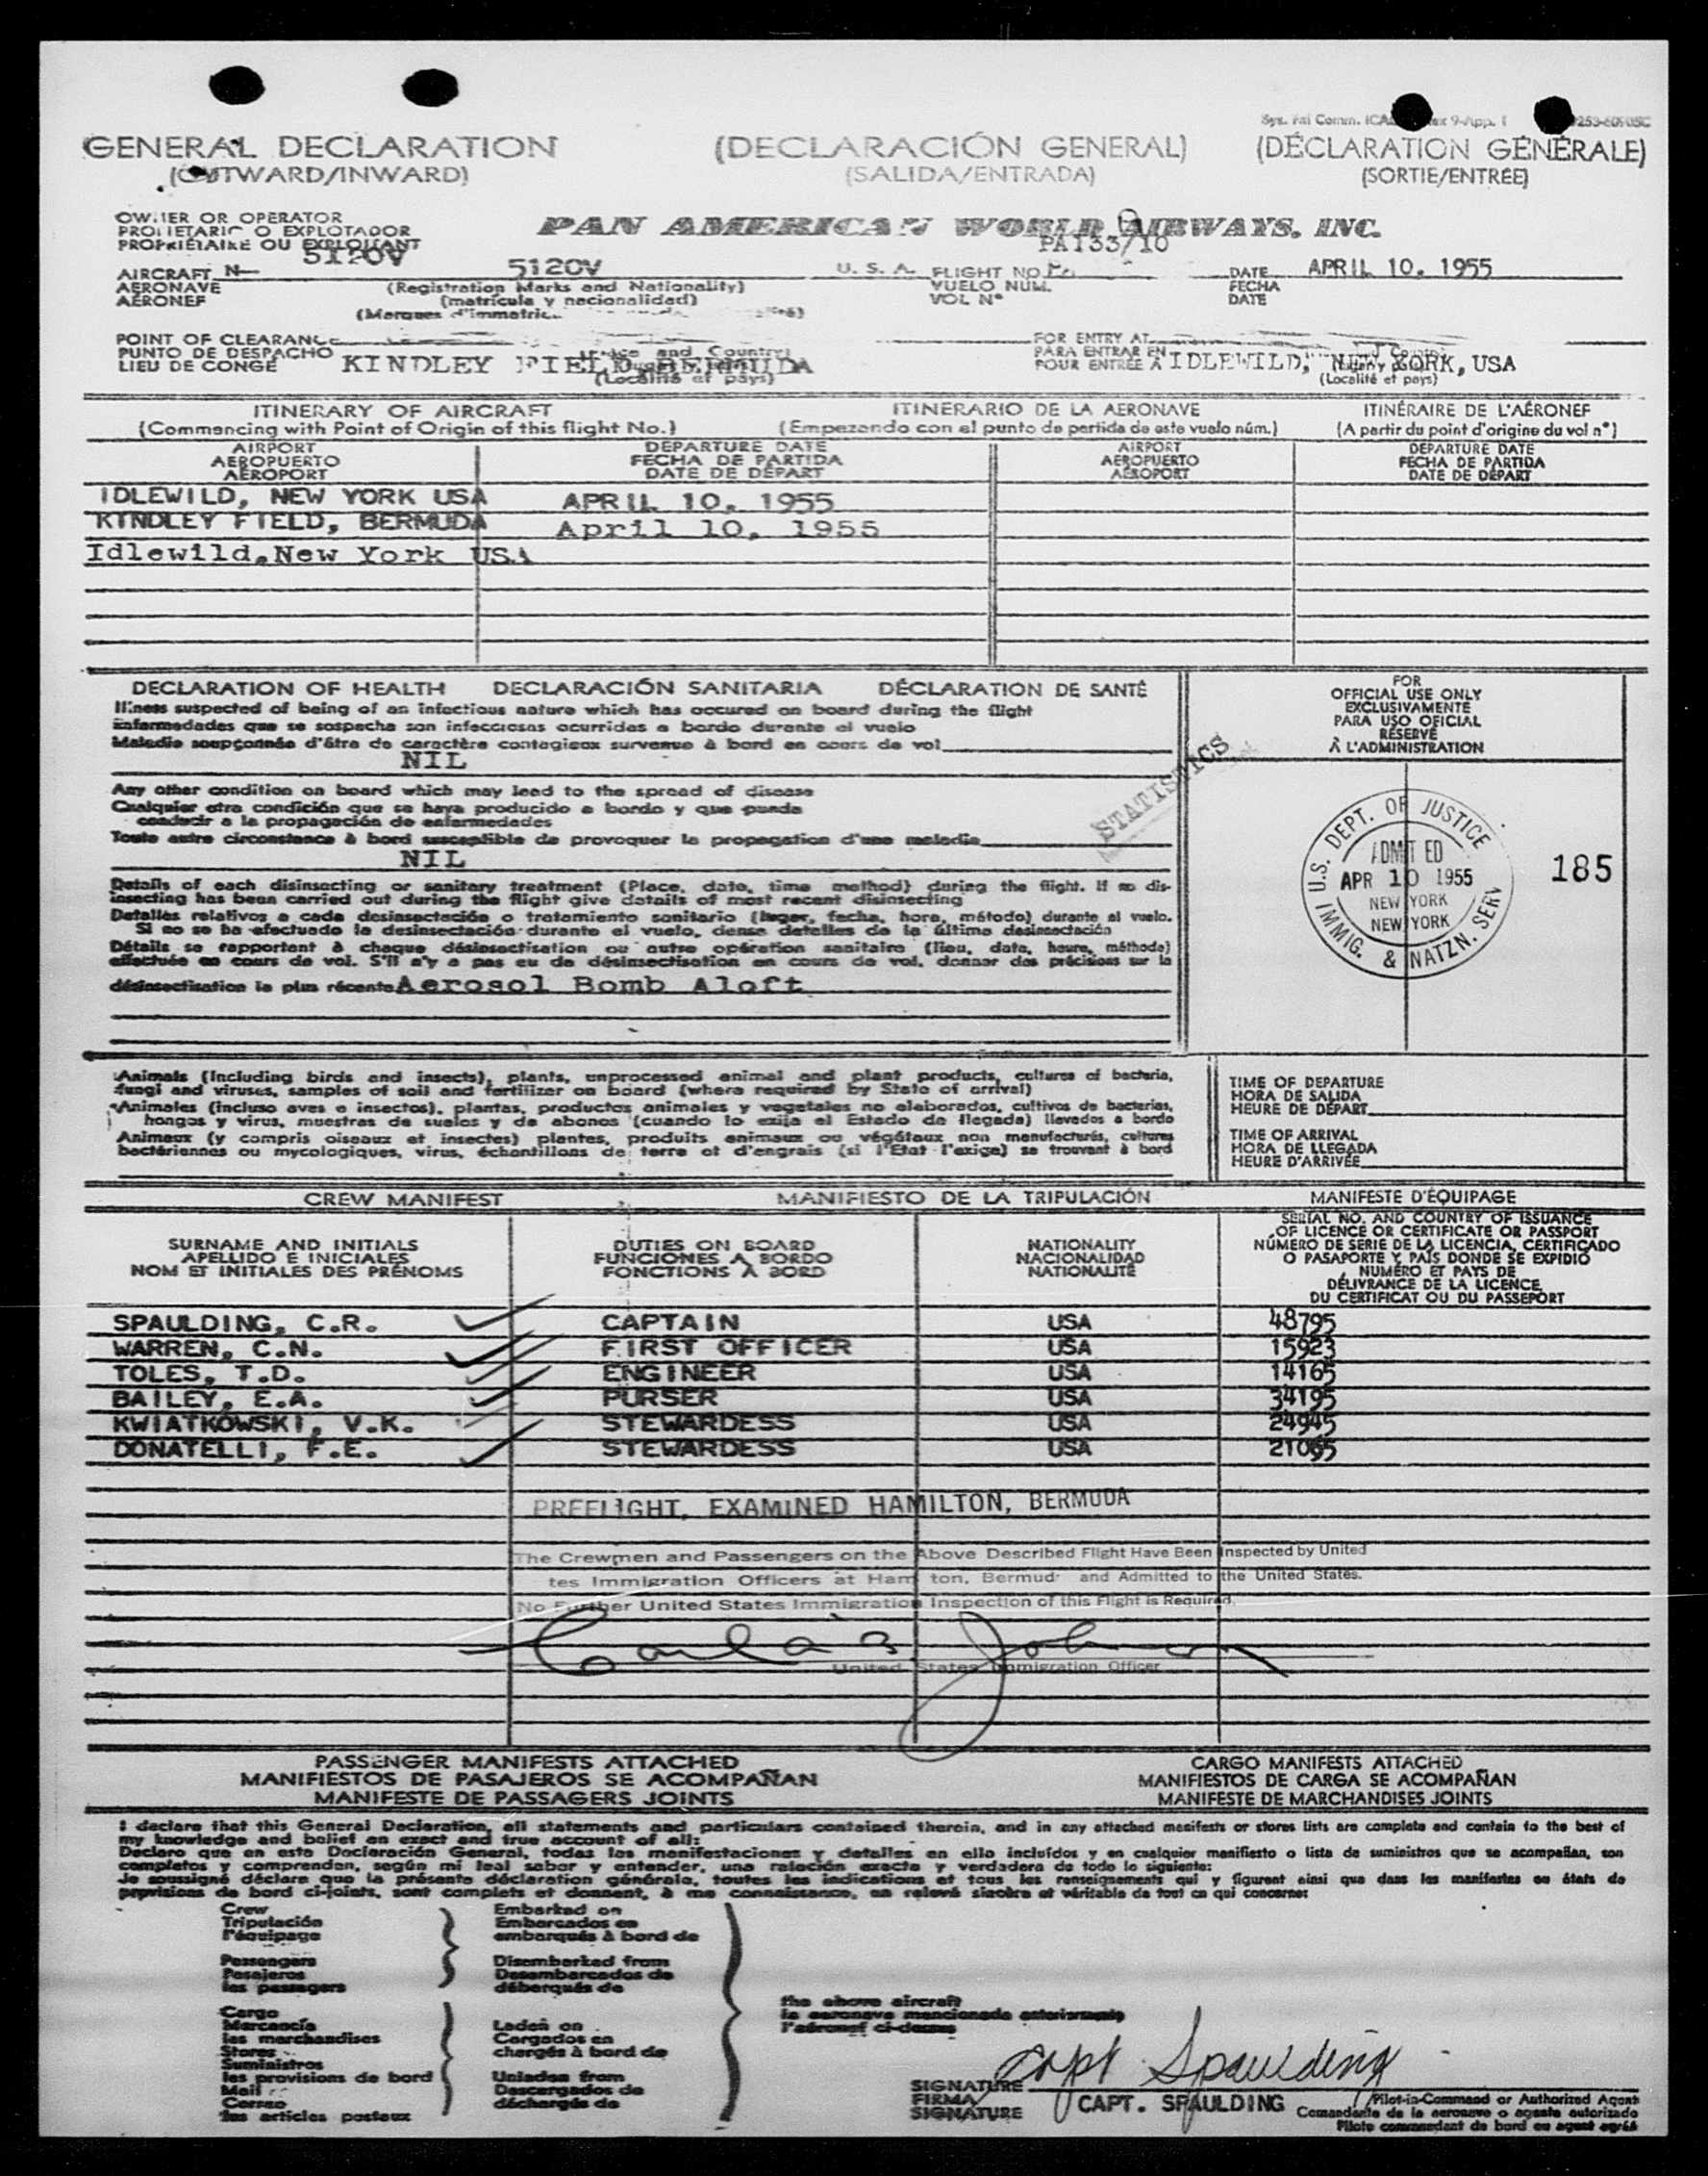 GENERAL DECLARATION (DECLARACIÓN GENERAL) (DÉCLARATION GÉNÉRALE)
(OUTWARD/INWARD) (SALIDA/ENTRADA) (SORTIE/ENTRÉE)
OWNER OR OPERATOR
PROPIETARIO O EXPLOTADOR
PROPRIÉTAIRE OU EXPLOITANT
PAN AMERICAN WORLD AIRWAYS, INC.
5120V PA133/10
AIRCRAFT N— 5120V U. S. A. FLIGHT NO. DATE APRIL 10. 1955
AERONAVE (Registration Marks and Nationality) VUELO NUM. FECHA
AÉRONEF (matrícula y nacionalidad) VOL N° DATE
POINT OF CLEARANCE FOR ENTRY AT
PUNTO DE DESPACHO PARA ENTRAR EN
LIEU DE CONGÉ KINDLEY FIELD, BERMUDA POUR ENTRÉE À IDLEWILD, NEW YORK, USA
(Localité et pays) (Localité et pays)
ITINERARY OF AIRCRAFT ITINERARIO DE LA AERONAVE ITINÉRAIRE DE L'AÉRONEF
(Commencing with Point of Origin of this flight No.) (Empezando con el punto de partida de este vuelo núm.) (A partir du point d'origine du vol n°)
AIRPORT DEPARTURE DATE AIRPORT DEPARTURE DATE
AEROPUERTO FECHA DE PARTIDA AEROPUERTO FECHA DE PARTIDA
AÉROPORT DATE DE DÉPART AÉROPORT DATE DE DÉPART
IDLEWILD, NEW YORK USA APRIL 10. 1955
KINDLEY FIELD, BERMUDA April 10, 1955
Idlewild,New York USA
DECLARATION OF HEALTH DECLARACIÓN SANITARIA DÉCLARATION DE SANTÉ
Illness suspected of being of an infectious nature which has occured on board during the flight
Enfermedades que se sospecha son infecciosas ocurridas a bordo durante el vuelo
Maladie soupçonnée d'être de caractère contagieux survenue à bord en cours de vol
NIL
Any other condition on board which may lead to the spread of disease
Cualquier otra condición que se haya producido a bordo y que pueda
conducir a la propagación de enfermedades
Toute autre circonstance à bord susceptible de provoquer la propagation d'une maladie
NIL
Details of each disinsecting or sanitary treatment (Place, date, time method) during the flight. If no dis-
insecting has been carried out during the flight give details of most recent disinsecting
Detalles relativos a cada desinsectación o tratamiento sanitario (lugar, fecha, hora, método) durante el vuelo.
Si no se ha efectuado la desinsectación durante el vuelo, dense detalles de la última desinsectación
Détails se rapportant à chaque désinsectisation ou autre opération sanitaire (lieu, date, heure, méthode)
effectuée en cours de vol. S'il n'y a pas eu de désinsectisation en cours de vol, donner des précisions sur la
désinsectisation la plus récente Aerosol Bomb Aloft
STATISTICS
FOR
OFFICIAL USE ONLY
EXCLUSIVAMENTE
PARA USO OFICIAL
RÉSERVÉ
À L'ADMINISTRATION
U.S. DEPT. OF JUSTICE
ADMITTED
APR 10 1955
NEW YORK
NEW YORK
IMMIG. & NATZN. SERV
185
Animals (Including birds and insects), plants, unprocessed animal and plant products, cultures of bacteria,
fungi and viruses, samples of soil and fertilizer on board (where required by State of arrival)
Animales (incluso aves e insectos), plantas, productos animales y vegetales no elaborados, cultivos de bacterias,
hongos y virus, muestras de suelos y de abonos (cuando lo exija el Estado de llegada) llevados a bordo
Animaux (y compris oiseaux et insectes) plantes, produits animaux ou végétaux non manufacturés, cultures
bactériennes ou mycologiques, virus, échantillons de terre et d'engrais (si l'État l'exige) se trouvant à bord
TIME OF DEPARTURE
HORA DE SALIDA
HEURE DE DÉPART
TIME OF ARRIVAL
HORA DE LLEGADA
HEURE D'ARRIVÉE
CREW MANIFEST MANIFIESTO DE LA TRIPULACIÓN MANIFESTE D'ÉQUIPAGE
SURNAME AND INITIALS
APELLIDO E INICIALES
NOM ET INITIALES DES PRÉNOMS
DUTIES ON BOARD
FUNCIONES A BORDO
FONCTIONS À BORD
NATIONALITY
NACIONALIDAD
NATIONALITÉ
SERIAL NO. AND COUNTRY OF ISSUANCE
OF LICENCE OR CERTIFICATE OR PASSPORT
NÚMERO DE SERIE DE LA LICENCIA, CERTIFICADO
O PASAPORTE Y PAÍS DONDE SE EXPIDIÓ
NUMÉRO ET PAYS DE
DÉLIVRANCE DE LA LICENCE
DU CERTIFICAT OU DU PASSEPORT
SPAULDING, C.R. CAPTAIN USA 48795
WARREN, C.N. FIRST OFFICER USA 15923
TOLES, T.D. ENGINEER USA 14165
BAILEY, E.A. PURSER USA 34195
KWIATKOWSKI, V.K. STEWARDESS USA 24945
DONATELLI, F.E. STEWARDESS USA 21065
PREFLIGHT, EXAMINED HAMILTON, BERMUDA
The Crewmen and Passengers on the Above Described Flight Have Been Inspected by United
tes Immigration Officers at Ham ton, Bermud and Admitted to the United States.
No Further United States Immigration Inspection of this Flight is Required.
United States Immigration Officer
PASSENGER MANIFESTS ATTACHED CARGO MANIFESTS ATTACHED
MANIFIESTOS DE PASAJEROS SE ACOMPAÑAN MANIFIESTOS DE CARGA SE ACOMPAÑAN
MANIFESTE DE PASSAGERS JOINTS MANIFESTE DE MARCHANDISES JOINTS
I declare that this General Declaration, all statements and particulars contained therein, and in any attached manifests or stores lists are complete and contain to the best of
my knowledge and belief an exact and true account of all:
Declaro que en esta Declaración General, todas las manifestaciones y detalles en ella incluídos y en cualquier manifiesto o lista de suministros que se acompañan, son
completos y comprenden, según mi leal saber y entender, una relación exacta y verdadera de todo lo siguiente:
Je soussigné déclare que la présente déclaration générale, toutes les indications et tous les renseignements qui y figurent ainsi que dans les manifestes ou états de
provisions de bord ci-joints, sont complets et donnent, à ma connaissance, un relevé sincère et véritable de tout ce qui concerne:
Crew
Tripulación
l'équipage
Passengers
Pasajeros
les passagers
Cargo
Mercancía
les marchandises
Stores
Suministros
les provisions de bord
Mail
Correo
les articles postaux
Embarked on
Embarcados en
embarqués à bord de
Disembarked from
Desembarcados de
débarqués de
Laden on
Cargados en
chargés à bord de
Unladen from
Descargados de
déchargés de
the above aircraft
la aeronave mencionada anteriormente
l'aéronef ci-dessus
Capt Spaulding
SIGNATURE
FIRMA
SIGNATURE
CAPT. SPAULDING
Pilot-in-Command or Authorized Agent
Comandante de la aeronave o agente autorizado
Pilote commandant de bord ou agent agréé